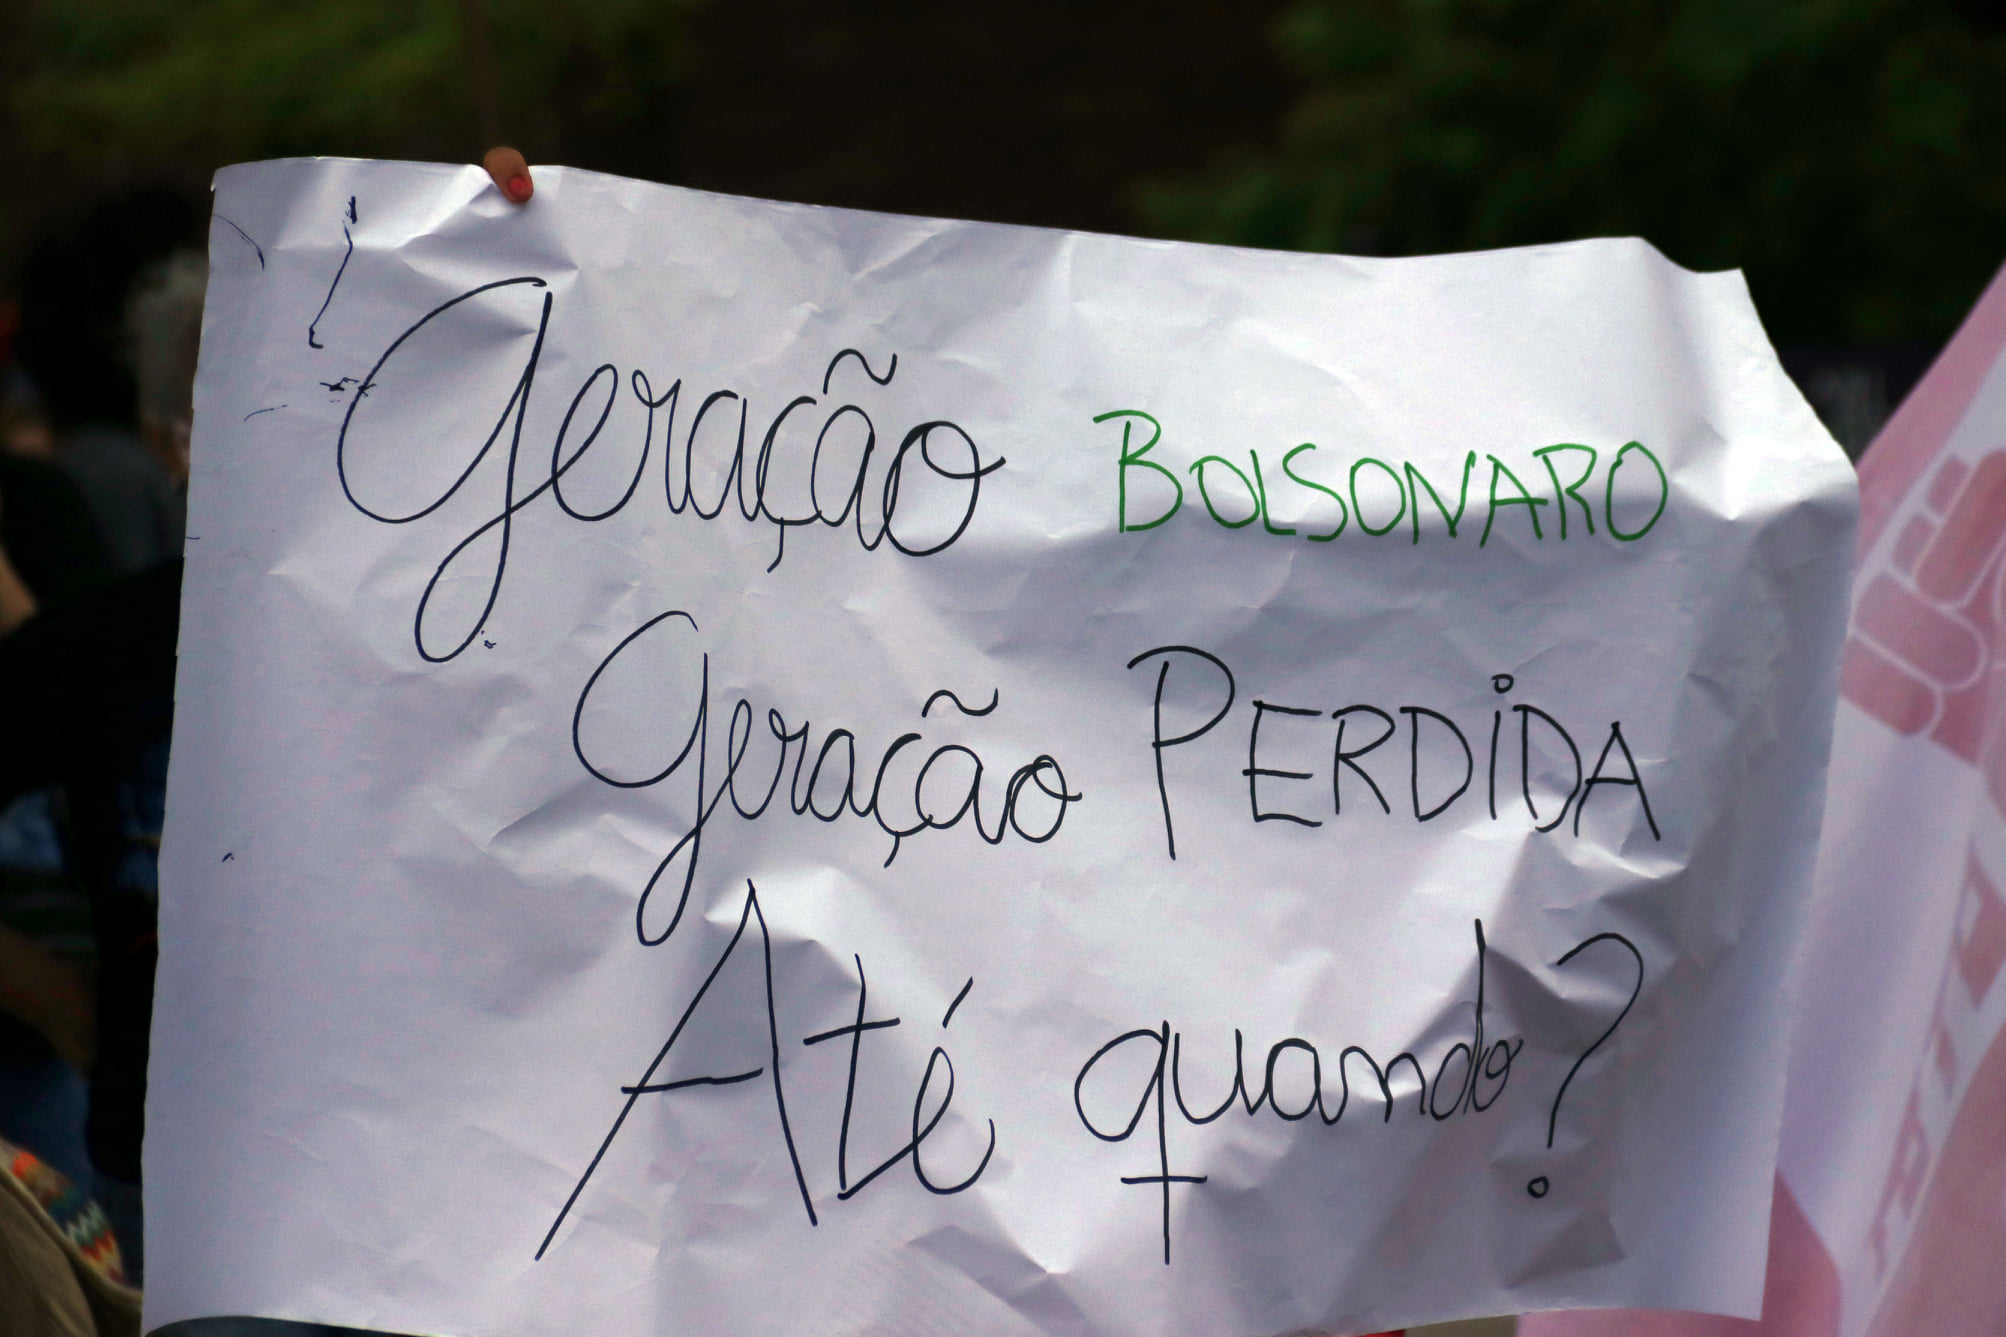 Geração BOLSONARO
Geração PERDiDA
Até quando?